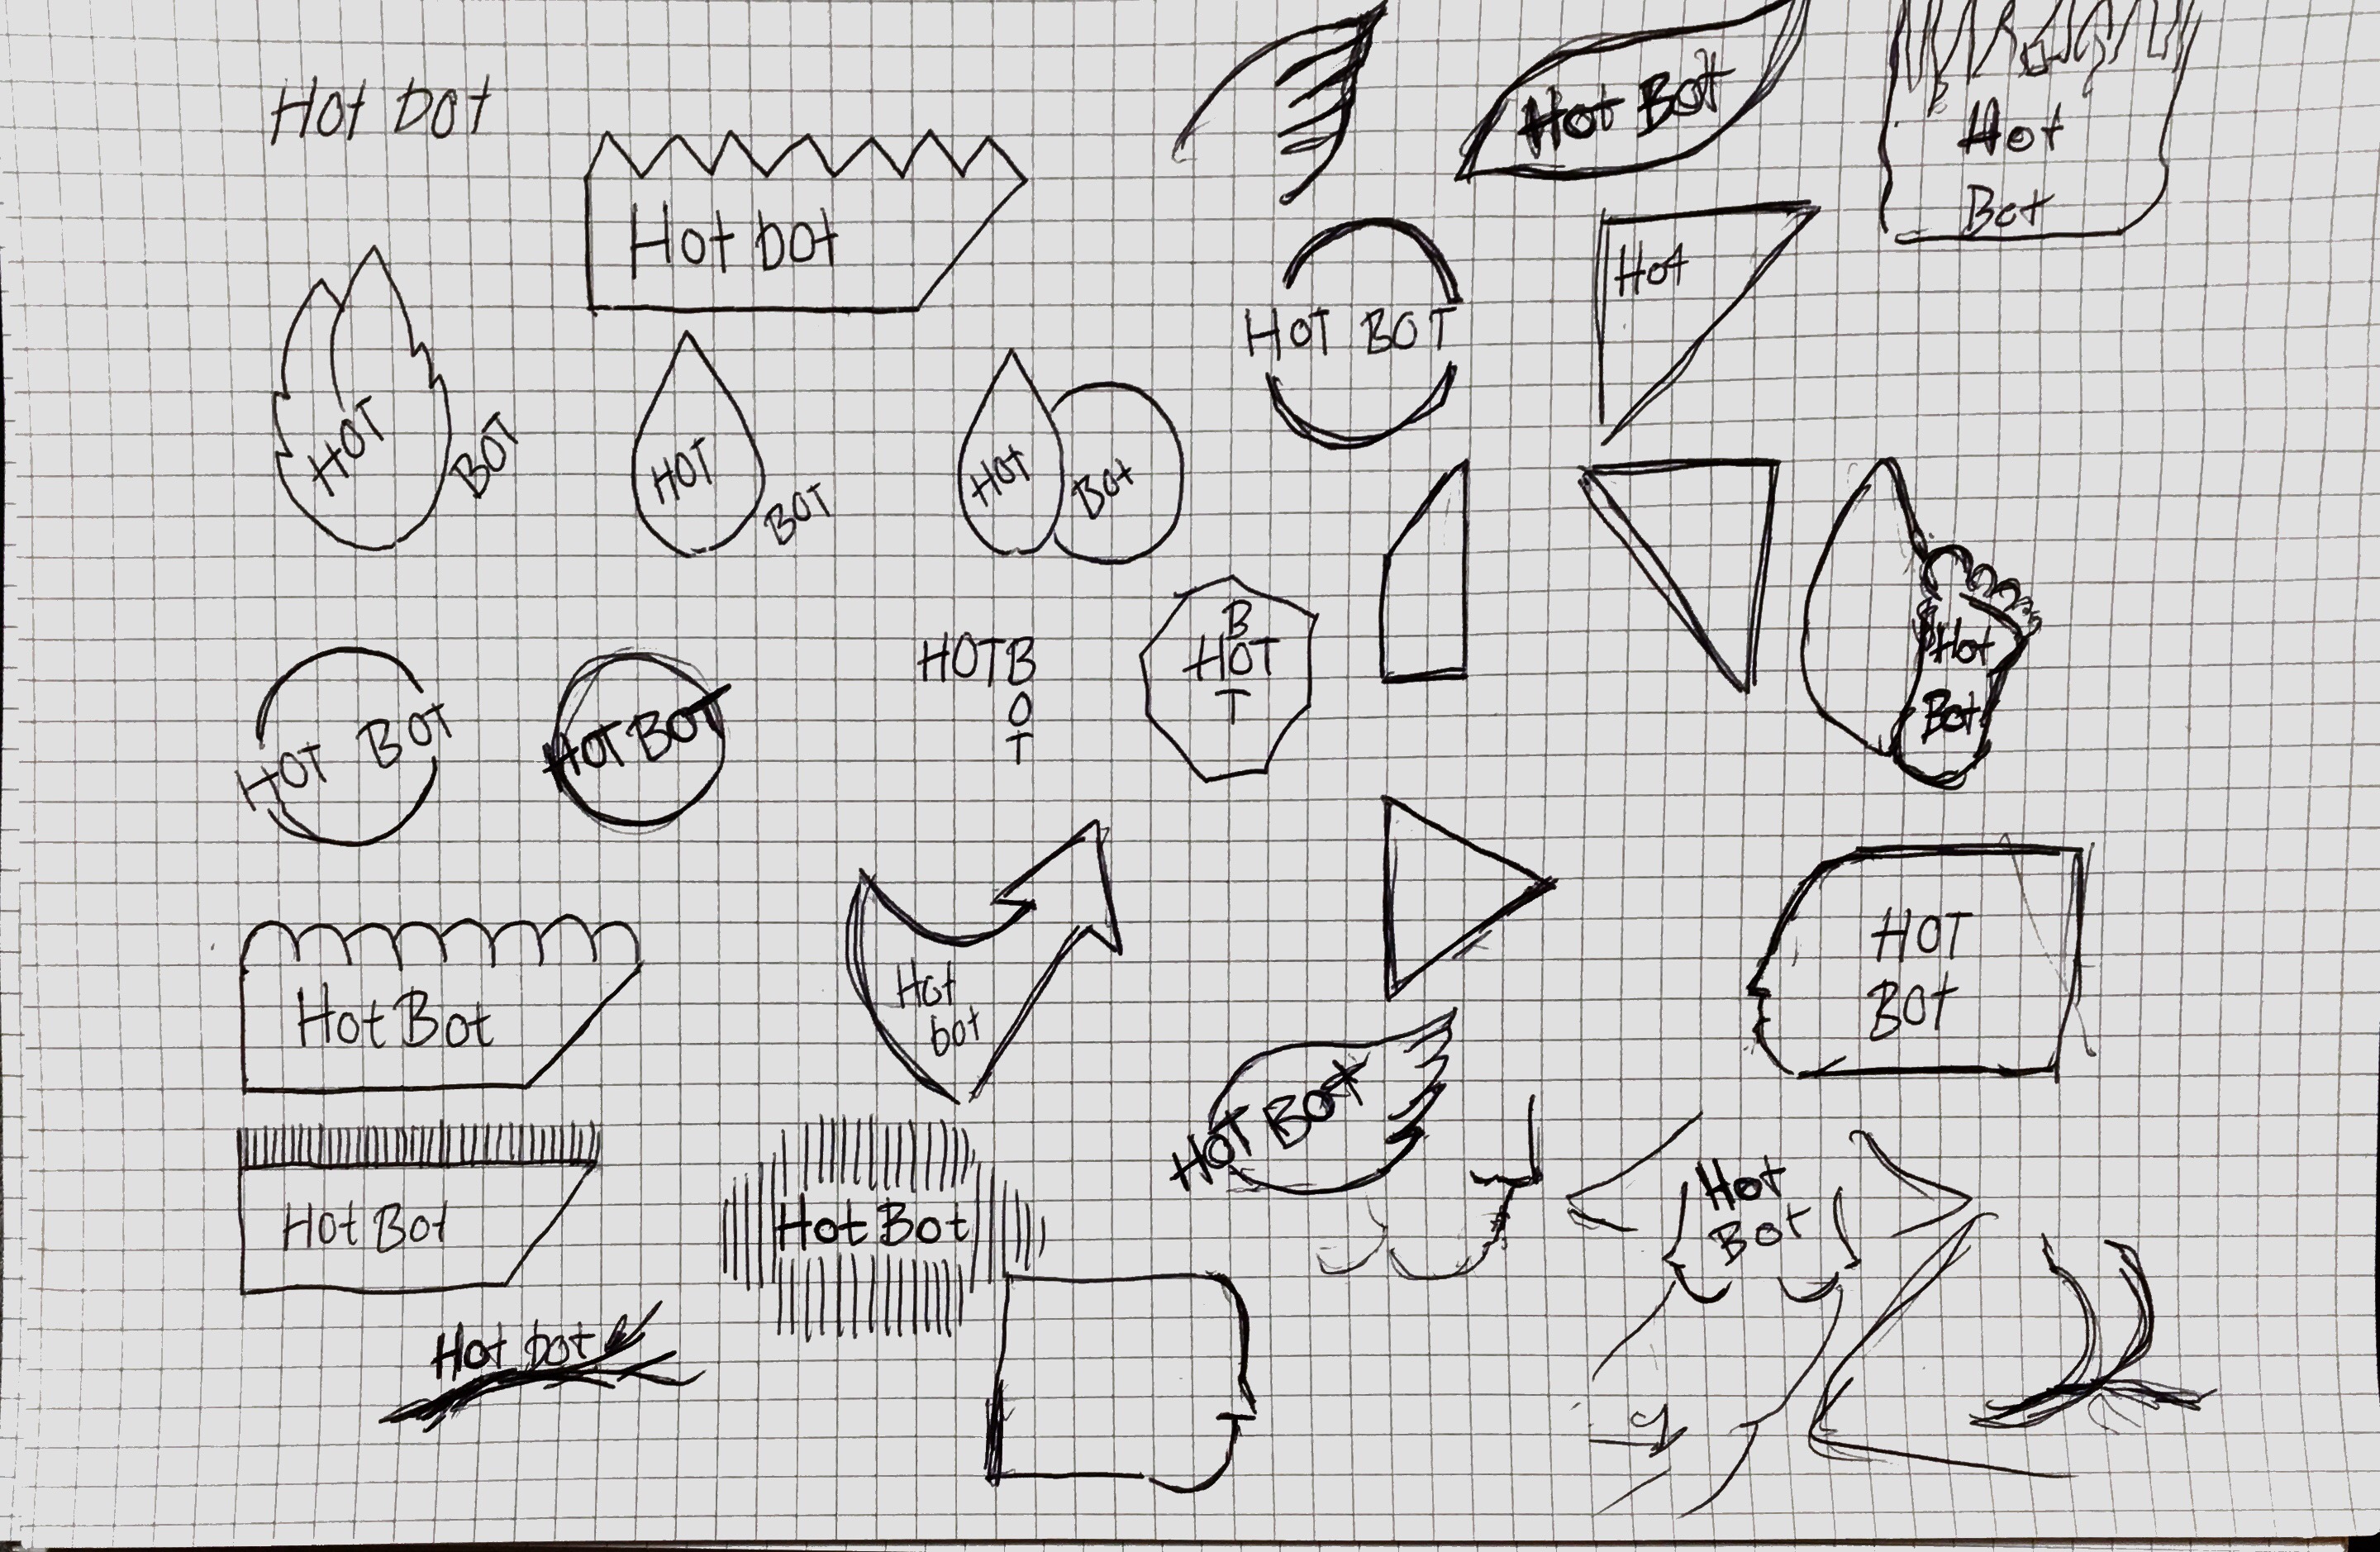 Hot bot
Hot bot
Hot Bot
Hot
Bot
HOT BOT
Hot
HOT
BOT
HOT
BOT
HOT
Bot
HOT BOT
HOTBOT
HOTB
O
T
B
HOT
T
Hot
Bot
Hot Bot
Hot
bot
HOT
BOT
HOT BOT
Hot
BOT
Hot Bot
Hot Bot
Hot bot